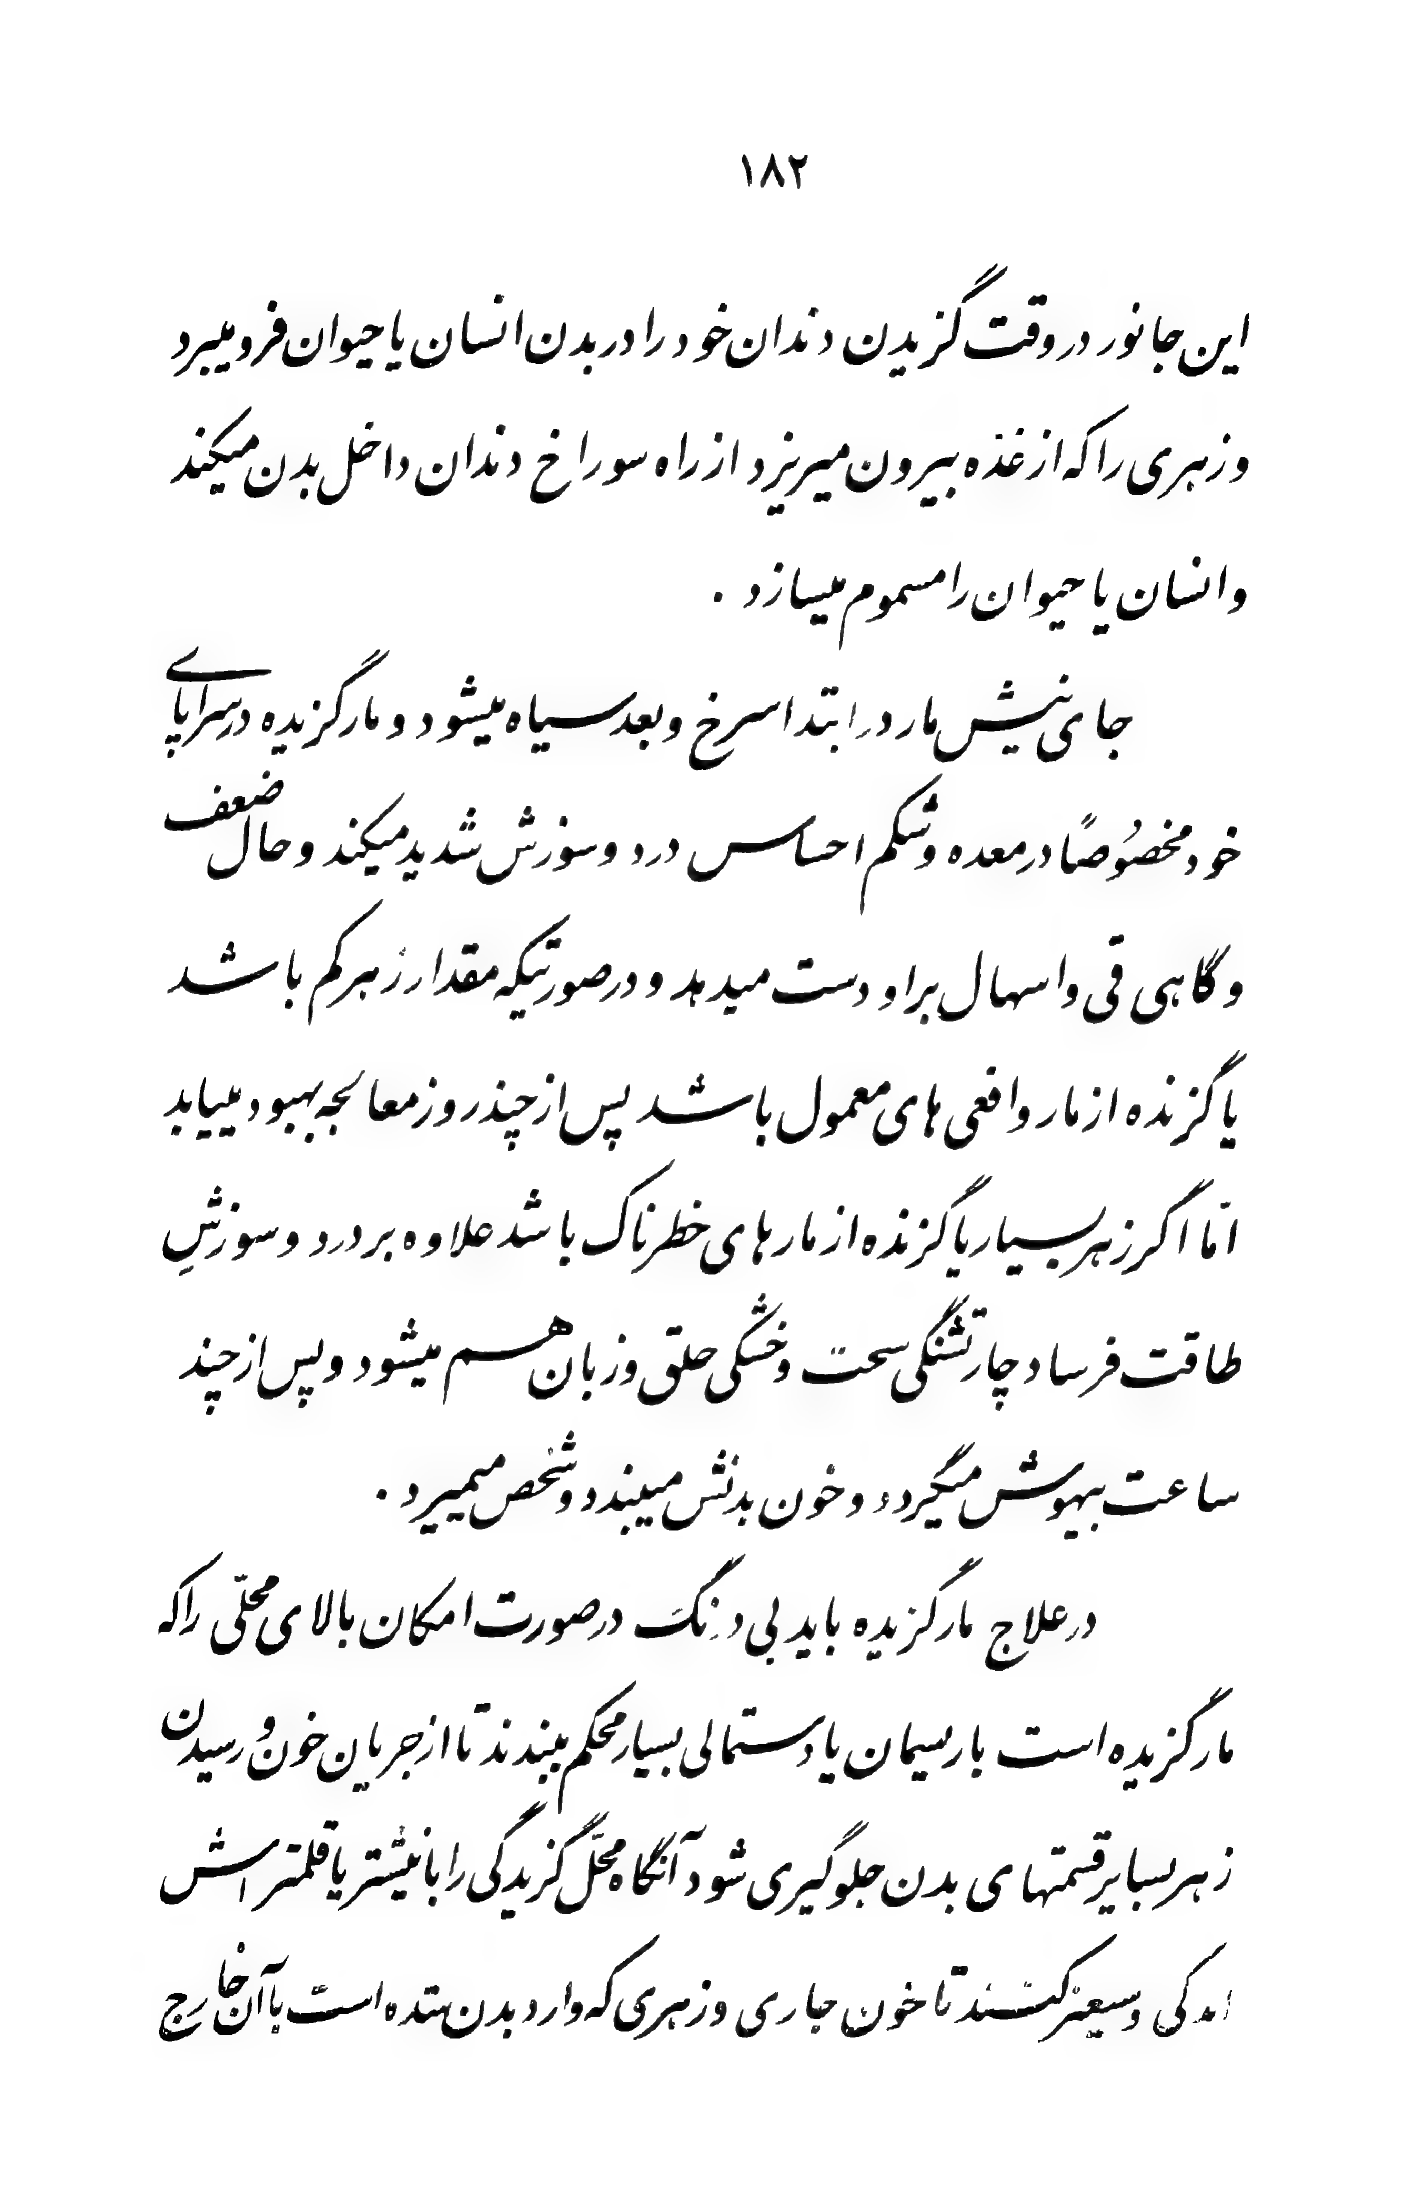 ۱۸۲
این جانور در وقت گزیدن دندان خود را در بدن انسان یا حیوان فرو میبرد
و زهری را که از غده بیرون میریزد از راه سوراخ دندان داخل بدن میکند
و انسان یا حیوان را مسموم میسازد .
جای نیش مار در ابتدا سرخ و بعد سیاه میشود و مارگزیده در سراپای
خود مخصُوصًا در معده و شکم احساس درد و سوزش شدید میکند و حال ضعف
و گاهی قی و اسهال براو دست میدهد و درصورتیکه مقدار زهر کم باشد
یا گزنده از مار و افعی های معمول باشد پس از چند روز معالجه بهبود مییابد
امّا اگر زهر بسیار یا گزنده از مارهای خطرناک باشد علاوه بر درد و سوزشِ
طاقت فرسا دچار تشنگی سخت و خشکی حلق و زبان هم میشود و پس از چند
ساعت بیهوش میگردد و خون بدنش میبندد و شخص میمیرد .
در علاج مارگزیده باید بی درنگ در صورت امکان بالای محلّی را که
مار گزیده است با ریسمان یا دستمالی بسیار محکم ببندند تا از جریان خون و رسیدن
زهر بسایر قسمتهای بدن جلوگیری شود آنگاه محلّ گزیدگی را با نیشتر یا قلمتراش
اندکی وسیعتر کنند تا خون جاری و زهری که وارد بدن شده است با آن خارج